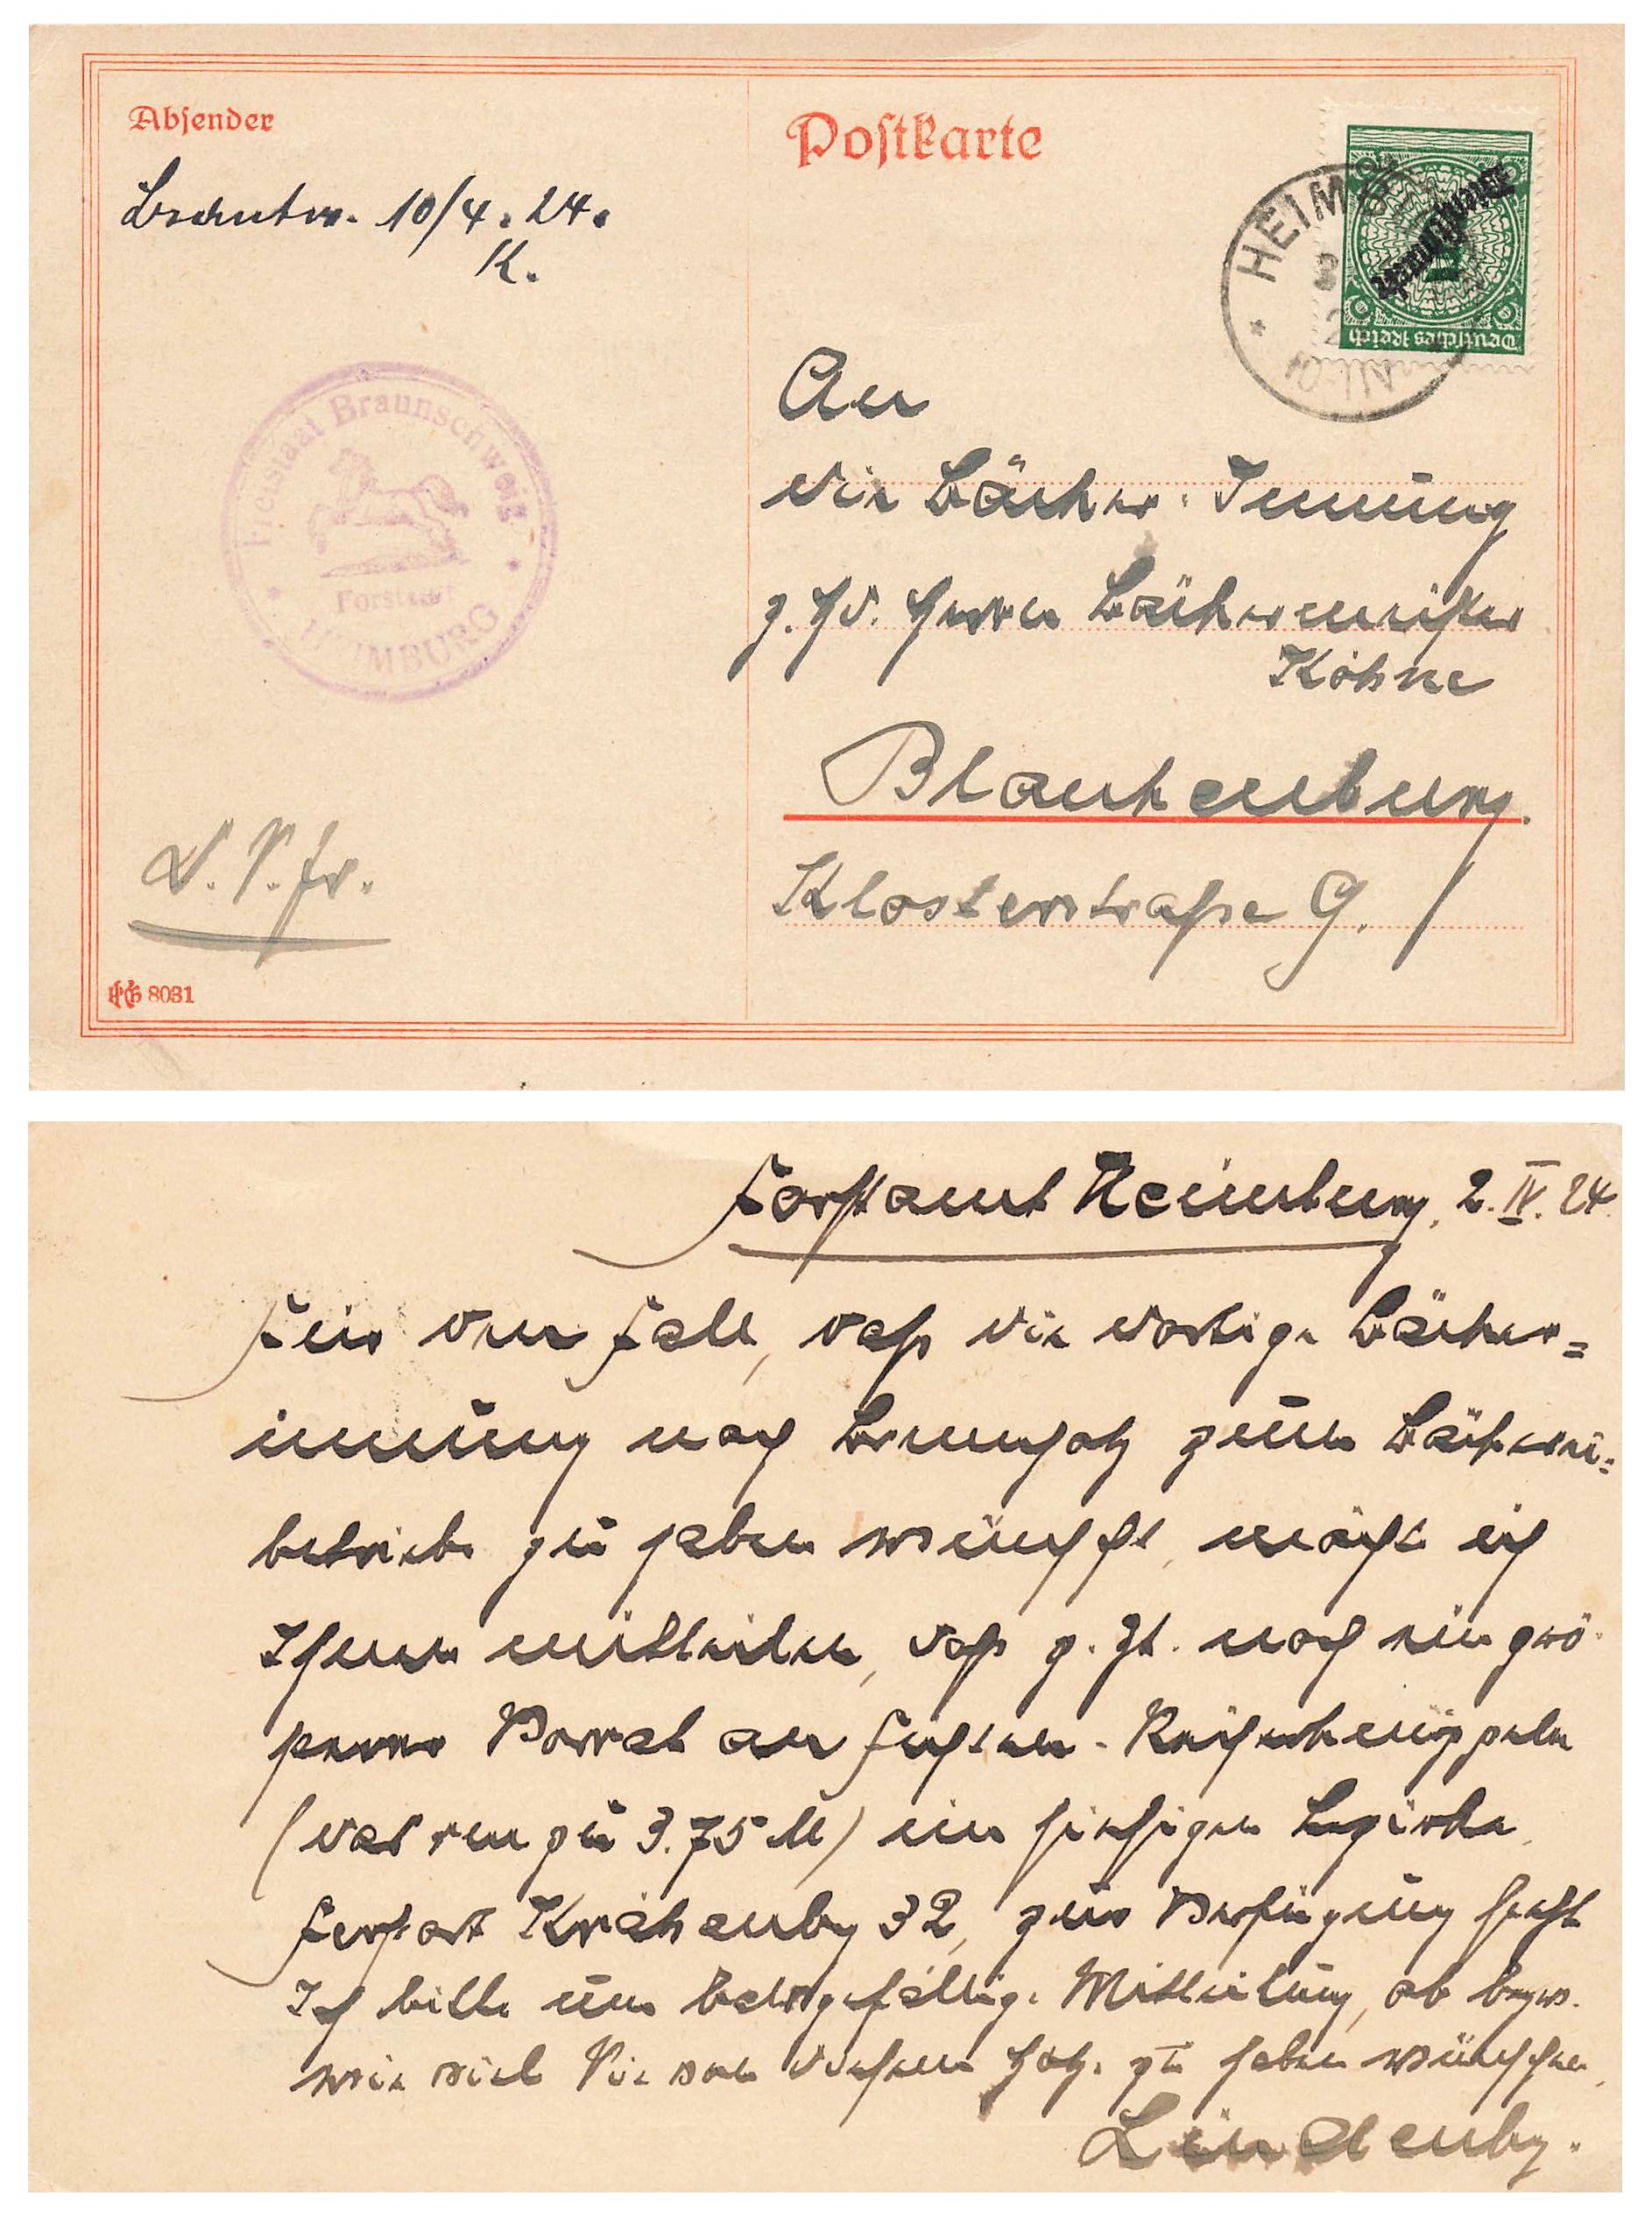 Absender
Postkarte
Beantw. 10/4. 24.
K.
HEIMBURG
3
Deutsches Reich
5
Rentenpfennig
Freistaat Braunschweig
Forstamt
HEIMBURG
An
die Bäcker-Innung
z. Hd. Herrn Bäckermeister
Köhne
Blankenburg.
Klosterstraße 9.
8031
Forstamt Heimburg, 2. IV. 24.
Für den Fall, daß die dortige Bäcker=
innung noch Brennholz zum Bäckerei=
betriebe zu haben wünscht, möchte ich
Ihnen mitteilen, daß z. Zt. noch ein grö-
sserer Vorrat an Fichten-Reiserknüppeln
(das rm zu 3.75 M) im hiesigen Bezirke,
Forstort Krähenbg 32, zur Verfügung steht
Ich bitte um baldgefällige Mitteilung, ob bezw.
wie viel Sie von diesem Holze zu haben wünschen.
Lindenbg.